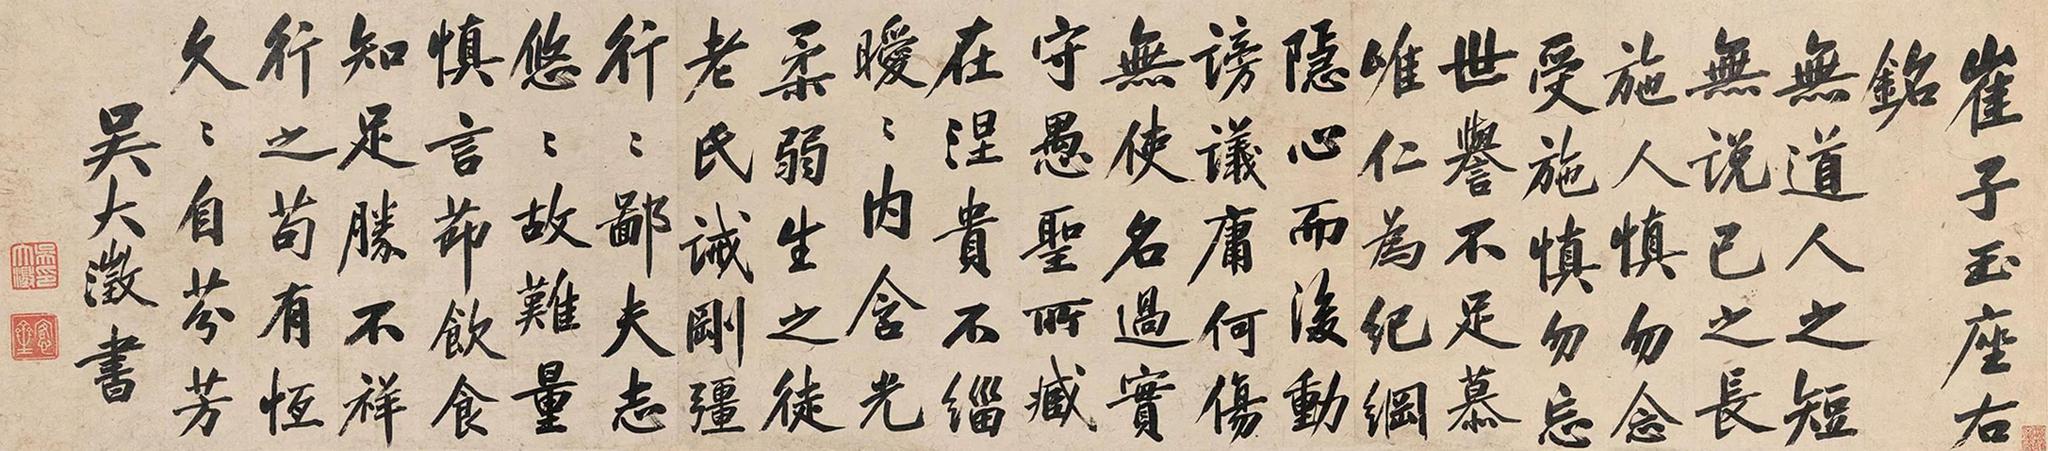 崔子玉座右
銘
無道人之短
無説己之長
施人慎勿念
受施慎勿忘
世譽不足慕
唯仁為紀綱
隱心而後動
謗議庸何傷
無使名過實
守愚聖所臧
在涅貴不緇
曖〻內含光
柔弱生之徒
老氏誡剛彊
行〻鄙夫志
悠〻故難量
慎言節飲食
知足勝不祥
行之苟有恆
久〻自芬芳
吳大澂書